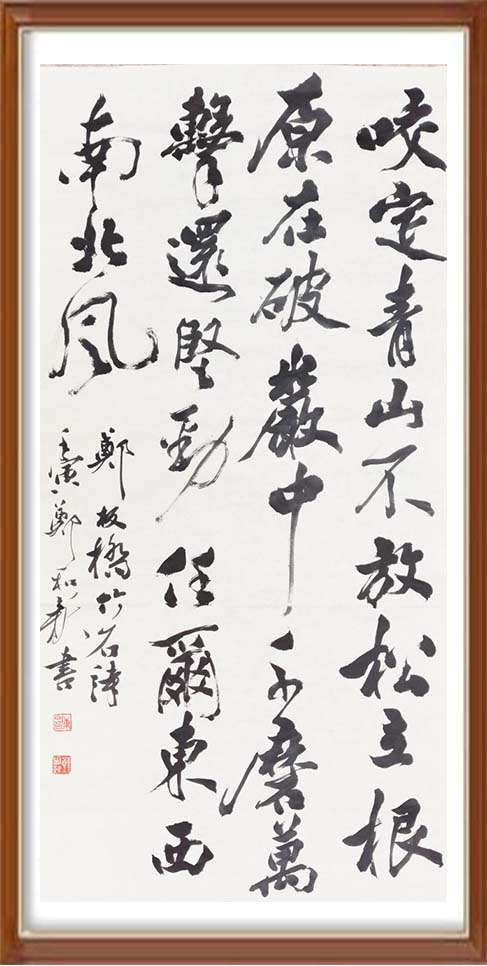 咬定青山不放松立根
原在破巖中千磨萬
擊還堅勁任爾東西
南北風
鄭板橋竹石詩
壬寅鄭和書